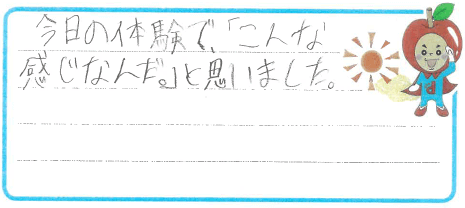 今日の体験で、「こんな
感じなんだ。」と思いました。